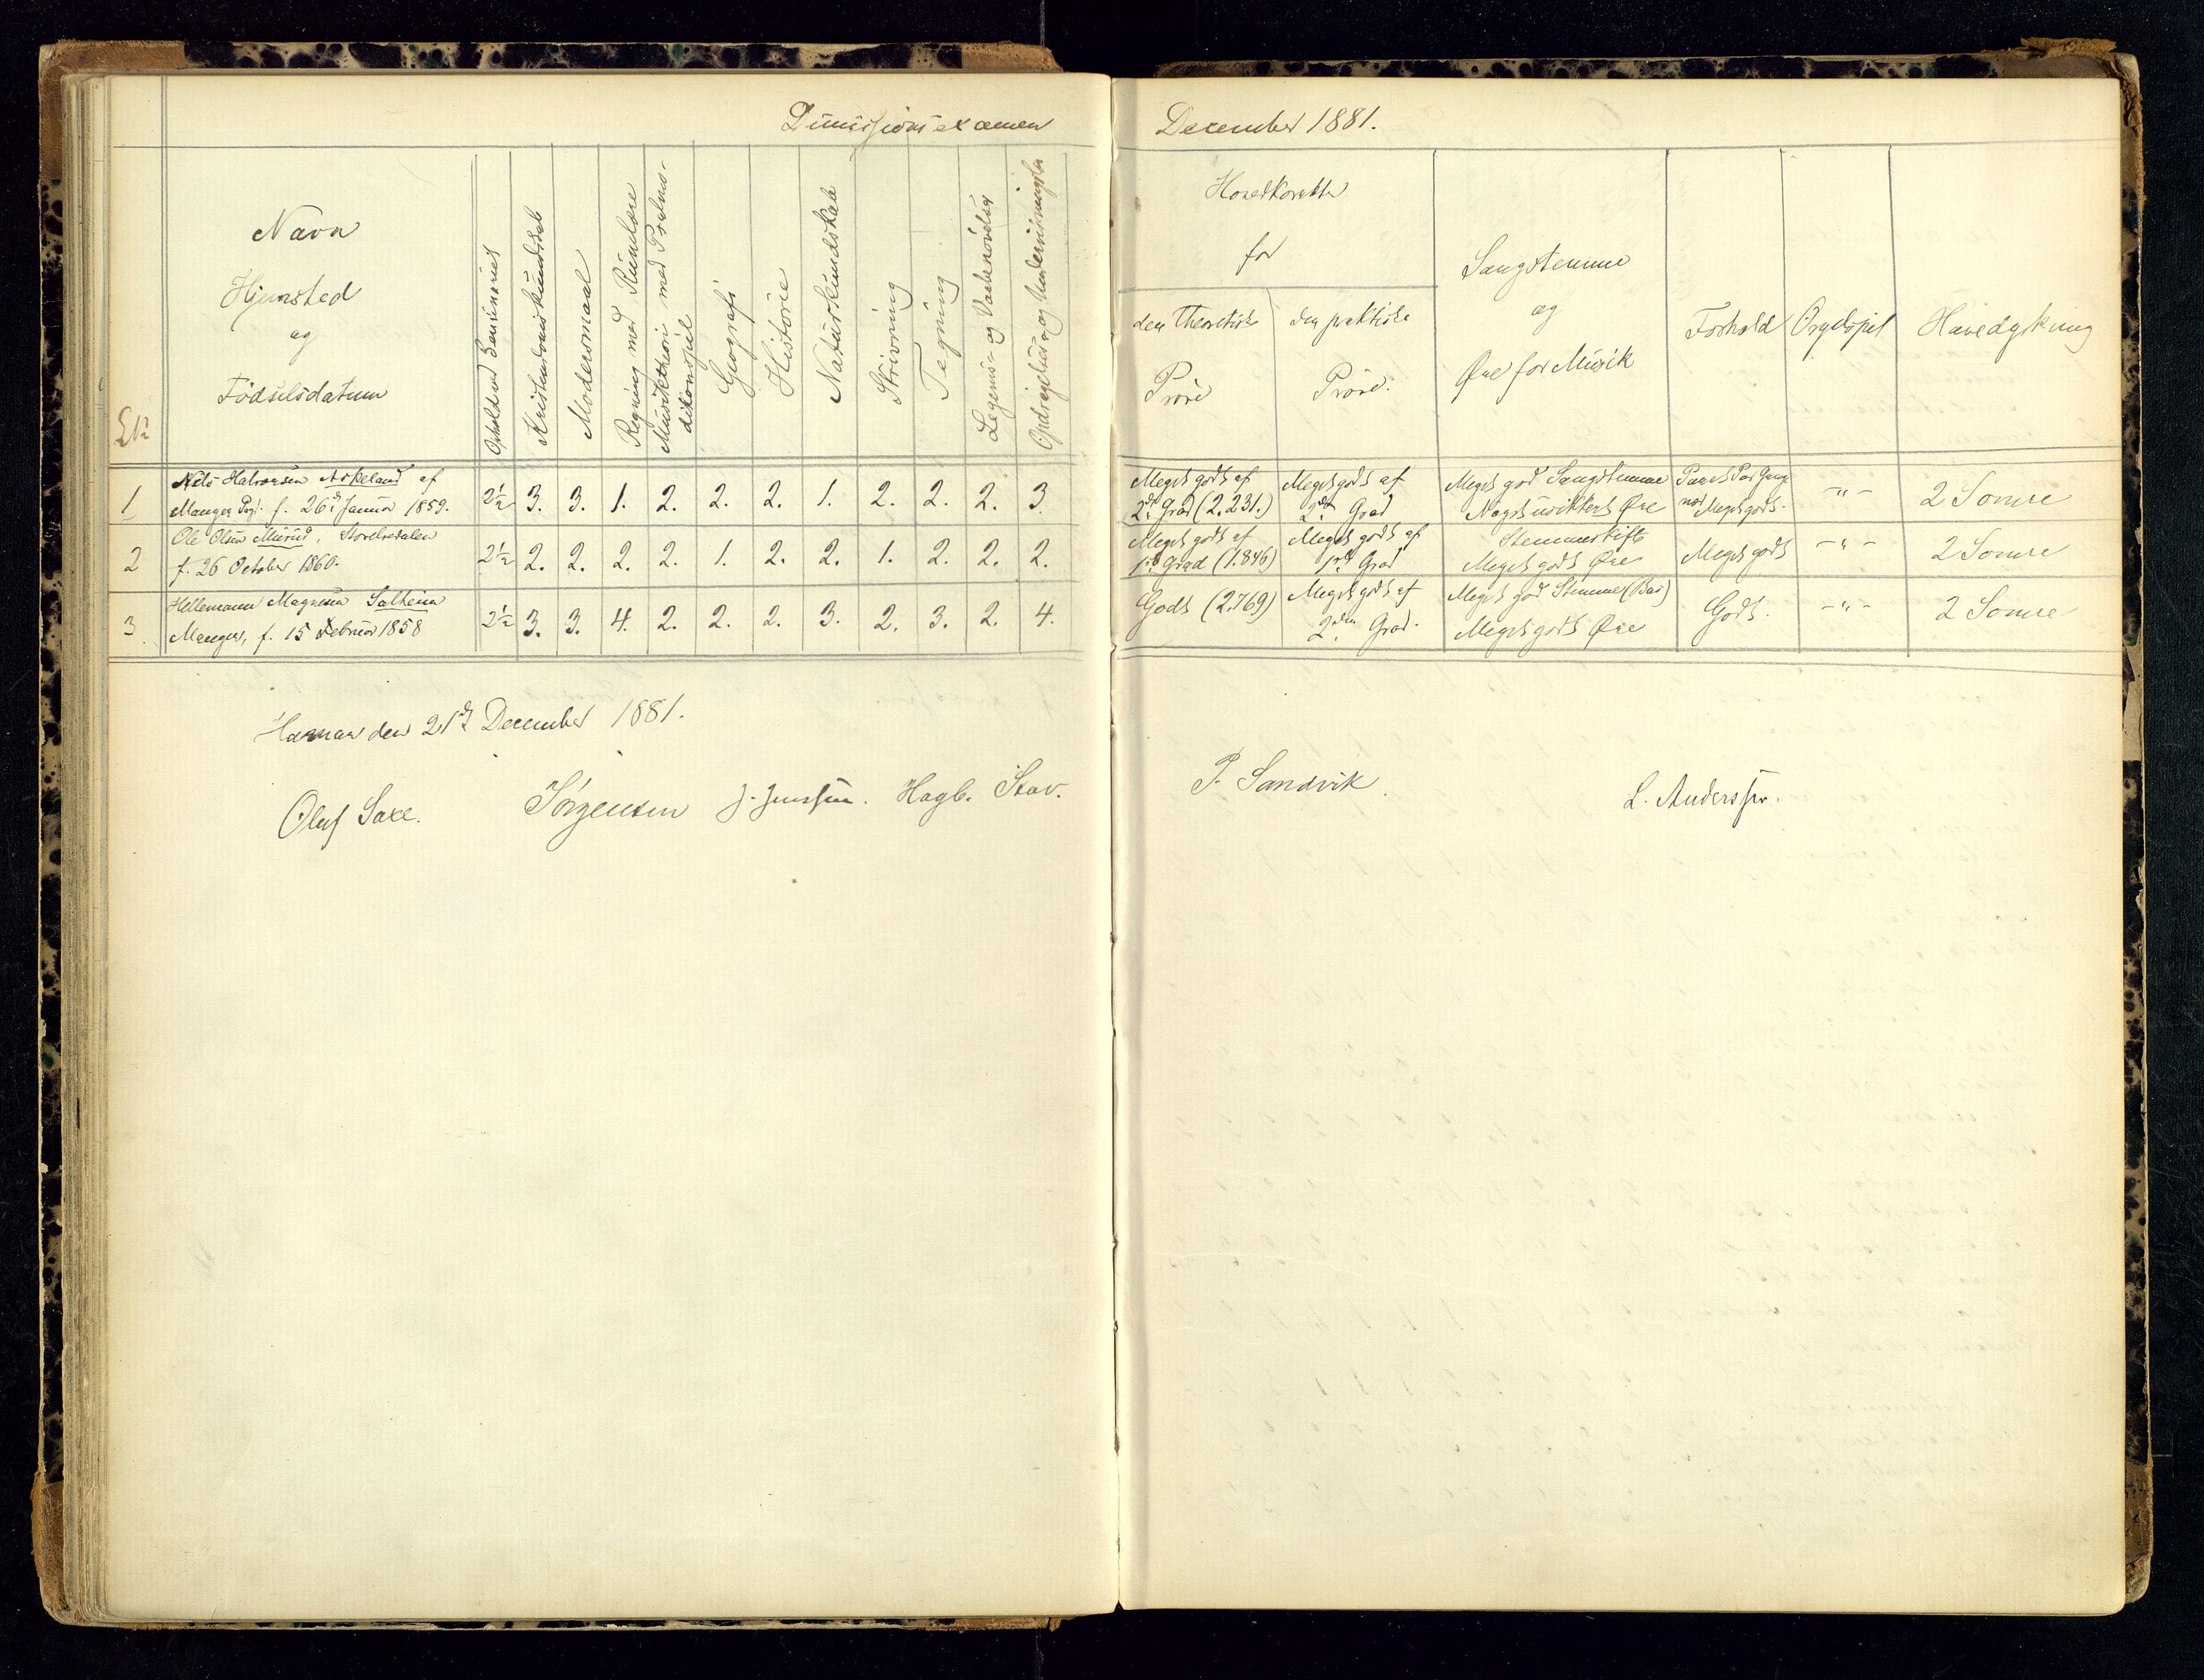 Dimissionsexamen
December 1881.
Navn
Hjemsted
og
Födselsdatum
Ophold ved Seminariet
Kristendomskundskab
Modersmaal
Regning med Rumlære
Musiktheori med Psalmo-
dikonspil
Geografi
Historie
Naturkundskab
Skrivning
Tegning
Legems- og Vaabenövelser
Opdragelses- og Undervisningslære
Hovedkarakter
for
den theoretiske
Pröve
den praktiske
Pröve.
Sangstemme
og
Øre for Musik
Forhold
Orgelspil
Havedyrkning
1 Nils Halvorsen Askeland af
Manger Pgj. f. 26de Januar 1859. 2½ 3. 3. 1. 2. 2. 2. 1. 2. 2. 2. 3.
Meget godt af
2den Grad (2.231.)
Meget godt af
2den Grad
Meget god Sangstemme
Noget usikkert Øre
Meget godt.
-"-
2 Somre
2 Ole Olsen Murud, Storelvedalen
f. 26 October 1860. 2½ 2. 2. 2. 2. 1. 2. 2. 1. 2. 2. 2.
Meget godt af
1ste Grad (1.846)
Meget godt af
1ste Grad
Stemmeskifte
Meget godt Øre
Meget godt
-"-
2 Somre
3. Hellemann Magnesen Salheim
Manger, f. 15 Februar 1858 2½ 3. 3. 4. 2. 2. 2. 3. 2. 3. 2. 4.
Godt (2.769)
Meget godt af
2den Grad.
Meget god Stemme (Bas)
Meget godt Øre
Godt.
-"-
2 Somre
Hamar den 21de December 1881.
Oluf Saxe. Jörgensen J. Jenssen. Hagb. Stav. P. Sandvik. L. Anderssen.